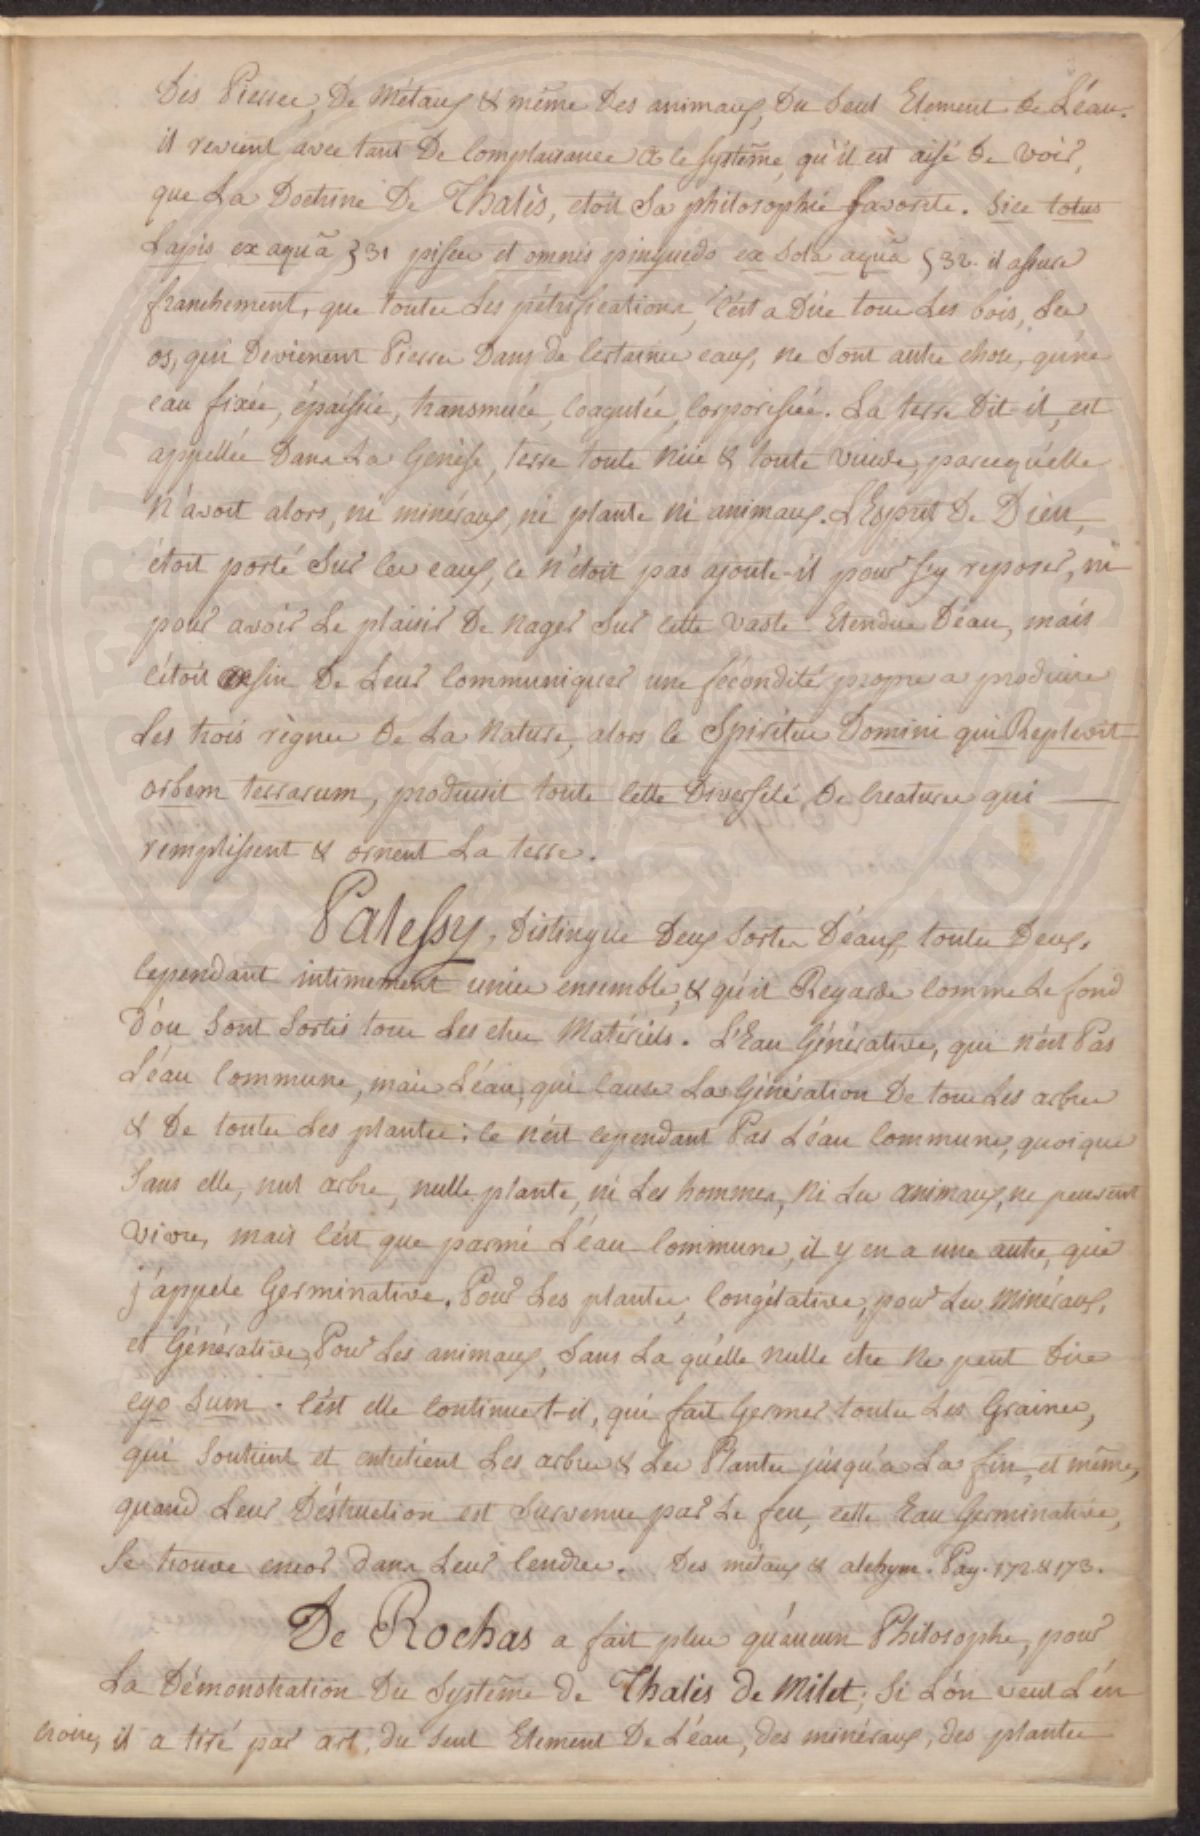 Des Pierres, De Métaux & même Des animaux, Du Seul Element De L'éau.
il revient avec tant De Complaisance à ce Systême, qu'il est aisé De voir,
que La Doctrine De Thalès, etoit Sa philosophie favorite. Sice totus
Lapis ex aquâ § 31 pisces et omnis pinguedo ex Sola aquâ § 32. il assure
franchement, que toutes Les pétrifications, C'est a Dire tous Les bois, Les
os, qui Devienent Pierres Dans de Certaines eaux, ne Sont autre chose, qu'une
eau fixée, épaissie, transmuée, Coagulée, Corporifiée. La terre Dit-il, est
appellée Dans La Genèse, terre toute Nüe & toute vuide, parcequ'elle
N'avoit alors, ni minéraux, ni plante Ni animaux. L'Esprit De Dieu,
étoit porté Sur les eaux, Ce N'étoit pas ajoute-il pour s'y reposer, ni
pour avoir Le plaisir De Nager Sur Cette vaste Etendue D'éau, mais
C'étoit afin De Leur Communiquer une fécondité propre a produire
Les trois règnes De La Nature, alors le Spiritus Domini qui Replevit
orbem terrarum, produisit toute Cette Diversité, De Creatures qui
remplissent & ornent La terre.
Palessy, Distingue Deux Sortes D'éaux, toutes Deux,
Cependant intimement unies ensemble, & qu'il Regarde Comme Le fond
D'ou Sont Sortis tous Les etres Matériels. L'Eau Générative, qui n'est Pas
L'éau Commune, mais L'éau, qui Cause La Génération De tous Les arbres
& De toutes Les plantes: Ce n'est Cependant Pas L'éau Commune, quoique
Sans elle, nul arbre, nulle plante, ni Les hommes, Ni Les animaux, ne peuvent
vivre, mais C'est que parmi L'éau Commune, il y en a une autre, que
j'appele Germinative, Pour Les plantes, Congélative, pour Les Minéraux,
et Générative, Pour Les animaux, Sans La quelle Nulle etre Ne peut Dire
ego Sum. C'est elle Continue t-il, qui fait Germer toutes Les Graines,
qui Soutient et entretient Les arbres & Les Plantes jusqu'a La fin, et même,
quand Leur Déstruction est Survenue par Le feu, cette Eau Germinative,
Se trouve encor dans Leur Cendres. Des métaux & alchym. Pag. 172. & 173.
De Rochas a fait plus qu'aucun Philosophe, pour
La Démonstration Du Systême de Thalès de Milet; Si L'on veut L'en
croire, il a tiré par art, du Seul Element De L'éau, Des minéraux, des plantes